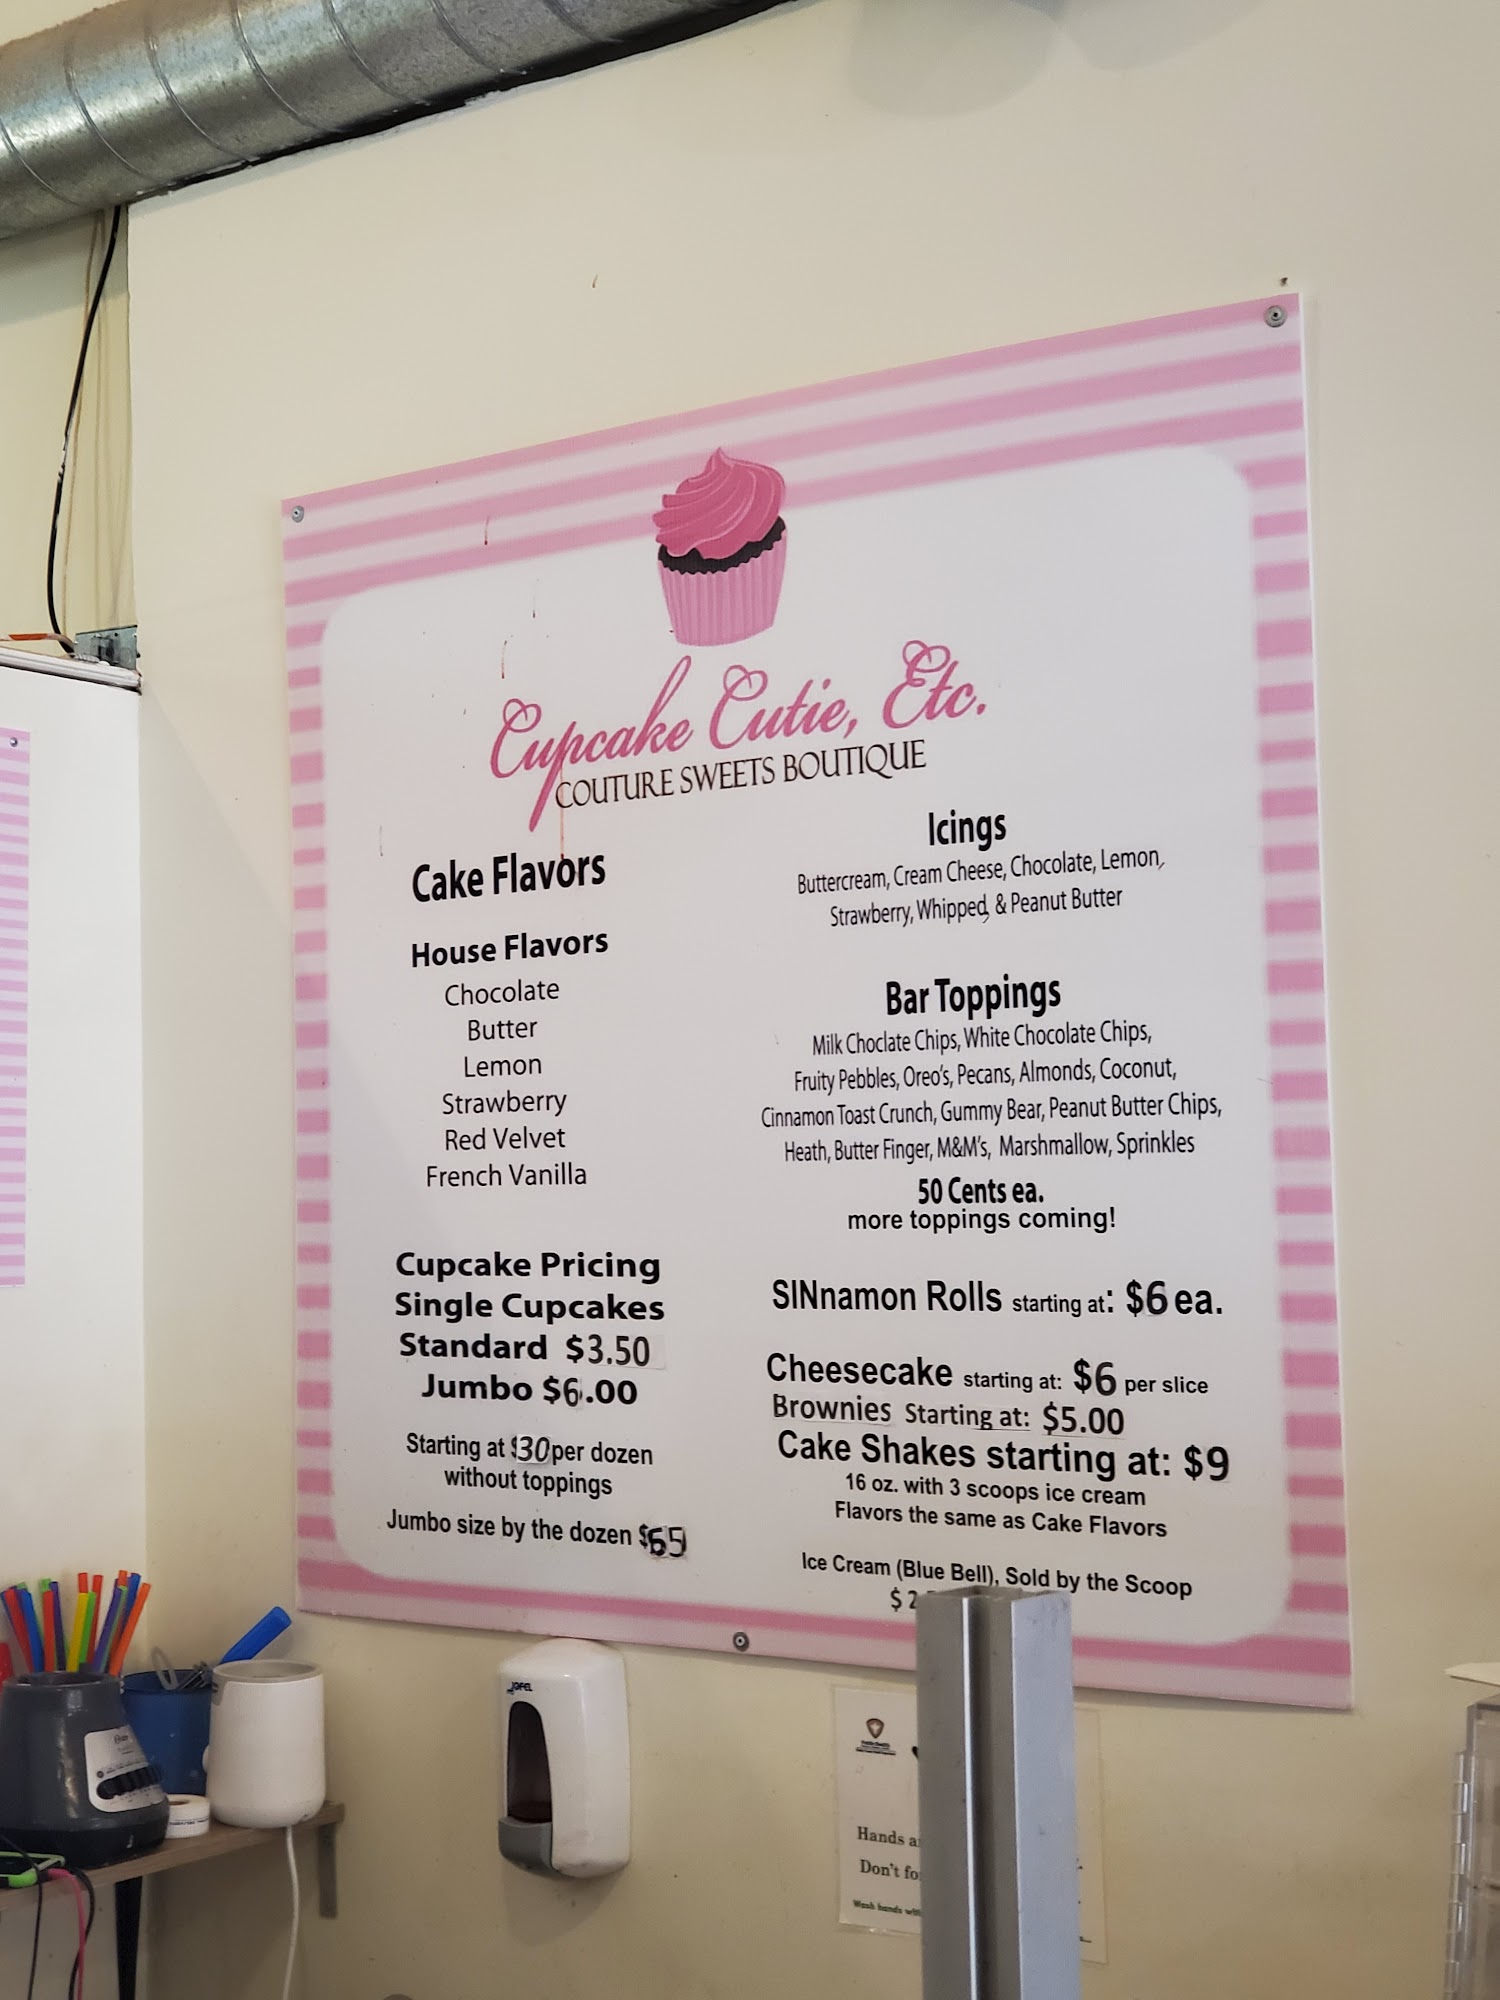 Cupcake Cutie, Etc.
COUTURE SWEETS BOUTIQUE
Cake Flavors
House Flavors
Chocolate
Butter
Lemon
Strawberry
Red Velvet
French Vanilla
Cupcake Pricing
Single Cupcakes
Standard $3.50
Jumbo $6.00
Starting at $30 per dozen
without toppings
Jumbo size by the dozen $65
Icings
Buttercream, Cream Cheese, Chocolate, Lemon,
Strawberry, Whipped, & Peanut Butter
Bar Toppings
Milk Choclate Chips, White Chocolate Chips,
Fruity Pebbles, Oreo's, Pecans, Almonds, Coconut,
Cinnamon Toast Crunch, Gummy Bear, Peanut Butter Chips,
Heath, Butter Finger, M&M's, Marshmallow, Sprinkles
50 Cents ea.
more toppings coming!
SINnamon Rolls starting at: $6 ea.
Cheesecake starting at: $6 per slice
Brownies Starting at: $5.00
Cake Shakes starting at: $9
16 oz. with 3 scoops ice cream
Flavors the same as Cake Flavors
Ice Cream (Blue Bell), Sold by the Scoop
$2
Hands
Don't
Wash hands